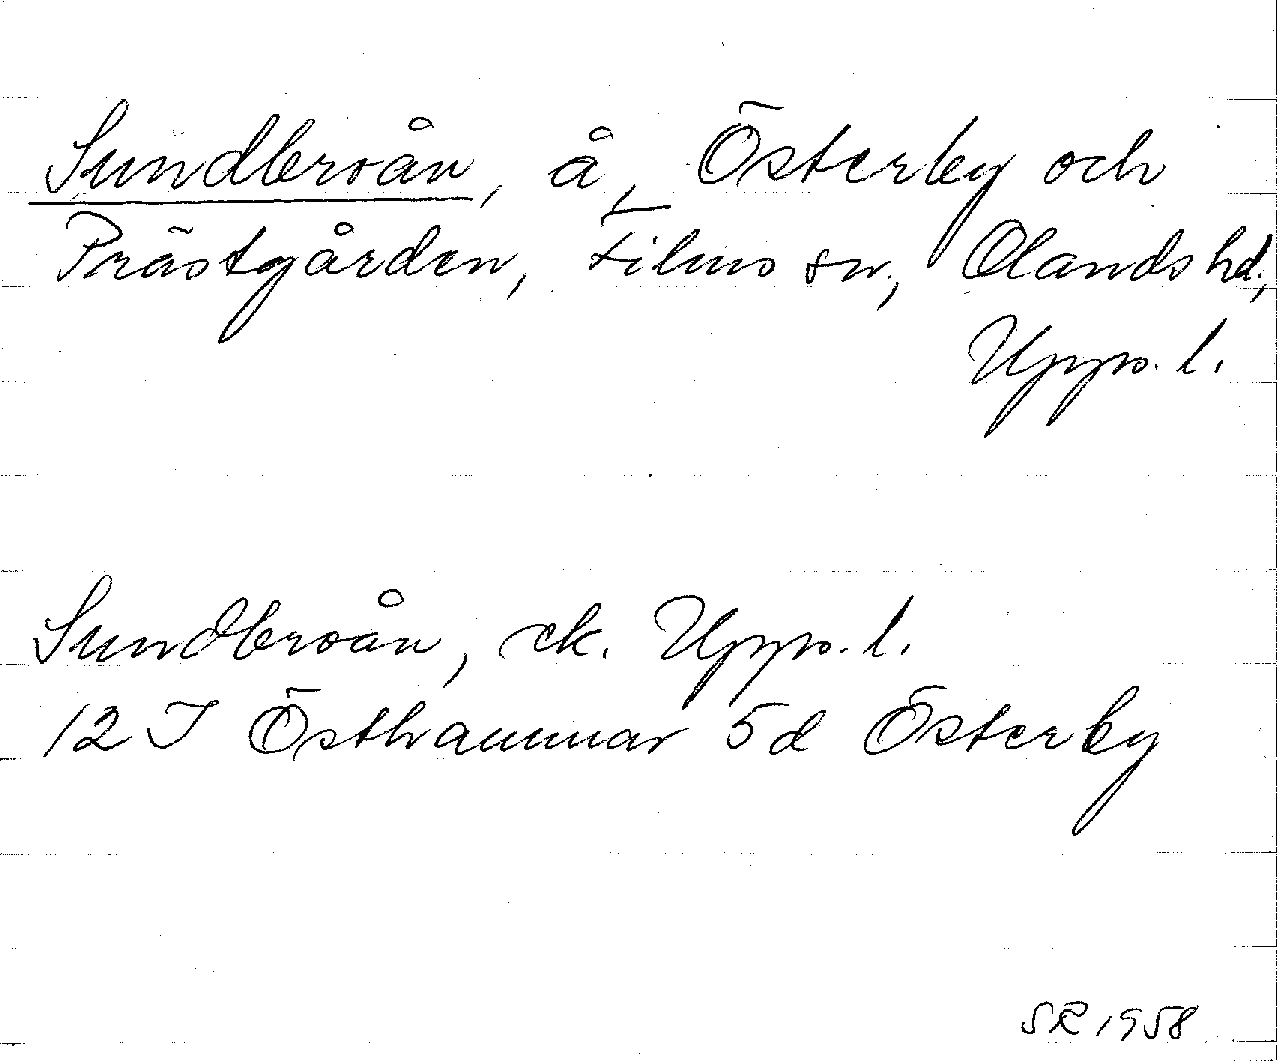 Sundbroån, å, Österby och
Prästgården, Films sn, Olands hd.,
Upps. l.
Sundbroån, ek. Upps. l.
12 I Östhammar 5d Österby
SR 1958